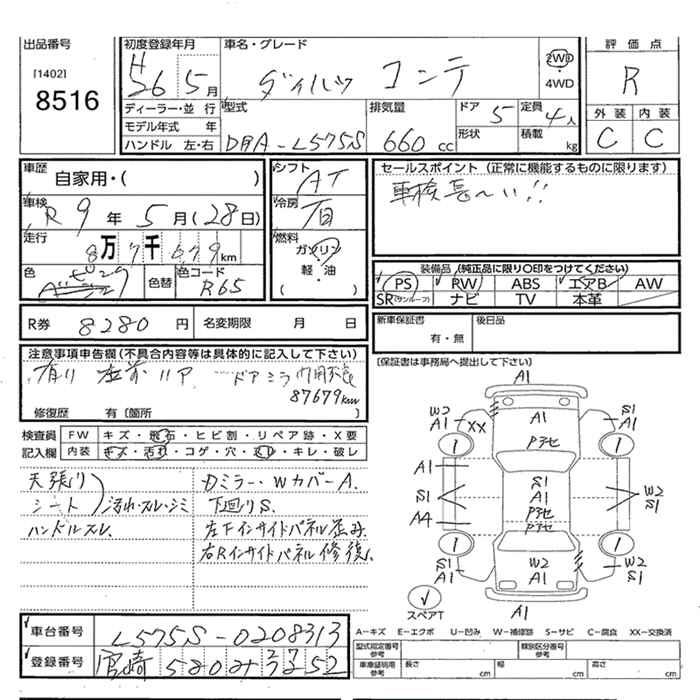 出品番号
[1402]
8516
初度登録年月
H 26 5月
車名・グレード
ダイハツ コンテ
2WD
・
4WD
評価点
R
ディーラー・並行
モデル年式 年
ハンドル 左・右
型式
DBA-L575S
排気量
660 cc
ドア 5
形状
定員 4人
積載 kg
外装 内装
C C
車歴
自家用・( )
車検
R 9年 5月(28日)
走行
8万7千679km
色
色替
色コード
R65
シフト
AT
冷房
燃料
ガソリン
・
軽・油
( )
セールスポイント (正常に機能するものに限ります)
車検長〜い!!
装備品 (純正品に限り〇印をつけてください)
PS RW ABS エアB AW
SR(サンルーフ) ナビ TV 本革
R券 8280円 名変期限 月 日
新車保証書
有・無
後日品
(保証書は事務局へ提出して下さい)
注意事項申告欄 (不具合内容等は具体的に記入して下さい)
ドアミラー
87679km
修復歴 有〔箇所 〕
検査員
記入欄
FW キズ・飛石・ヒビ割・リペア跡・X要
内装 キズ・汚れ・コゲ・穴・スレ・キレ・破レ
天張り
シート
汚れ・スレ・シミ
ハンドルスレ
Dミラー・WカバーA.
下廻りS.
左Fインサイドパネル歪み
右Rインサイドパネル修復.
A1
W2
A1
XX
A1
S1
A1
Pアセ
A1
S1
A4
S1
A1
Pアセ
Pアセ
W2
S1
S1
A1
W2
A1
W2
S1
A1
スペアT
車台番号
L575S-0208313
登録番号
宮崎 580
52
A-キズ E-エクボ U-凹み W-補修跡 S-サビ C-腐食 XX-交換済
型式指定番号
参考
類別区分番号
参考
車庫証明用
参考
長さ cm
幅 cm
高さ cm